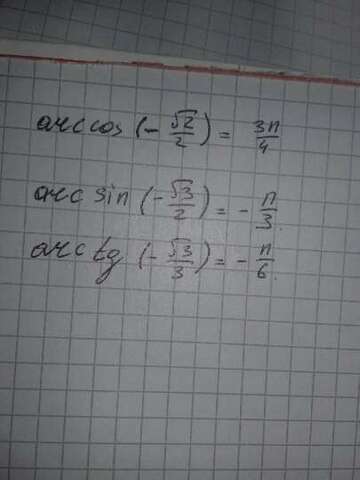 arc cos (-√2/2) = 3π/4
arc sin (-√3/2) = -π/3.
arc tg (-√3/3) = -π/6.